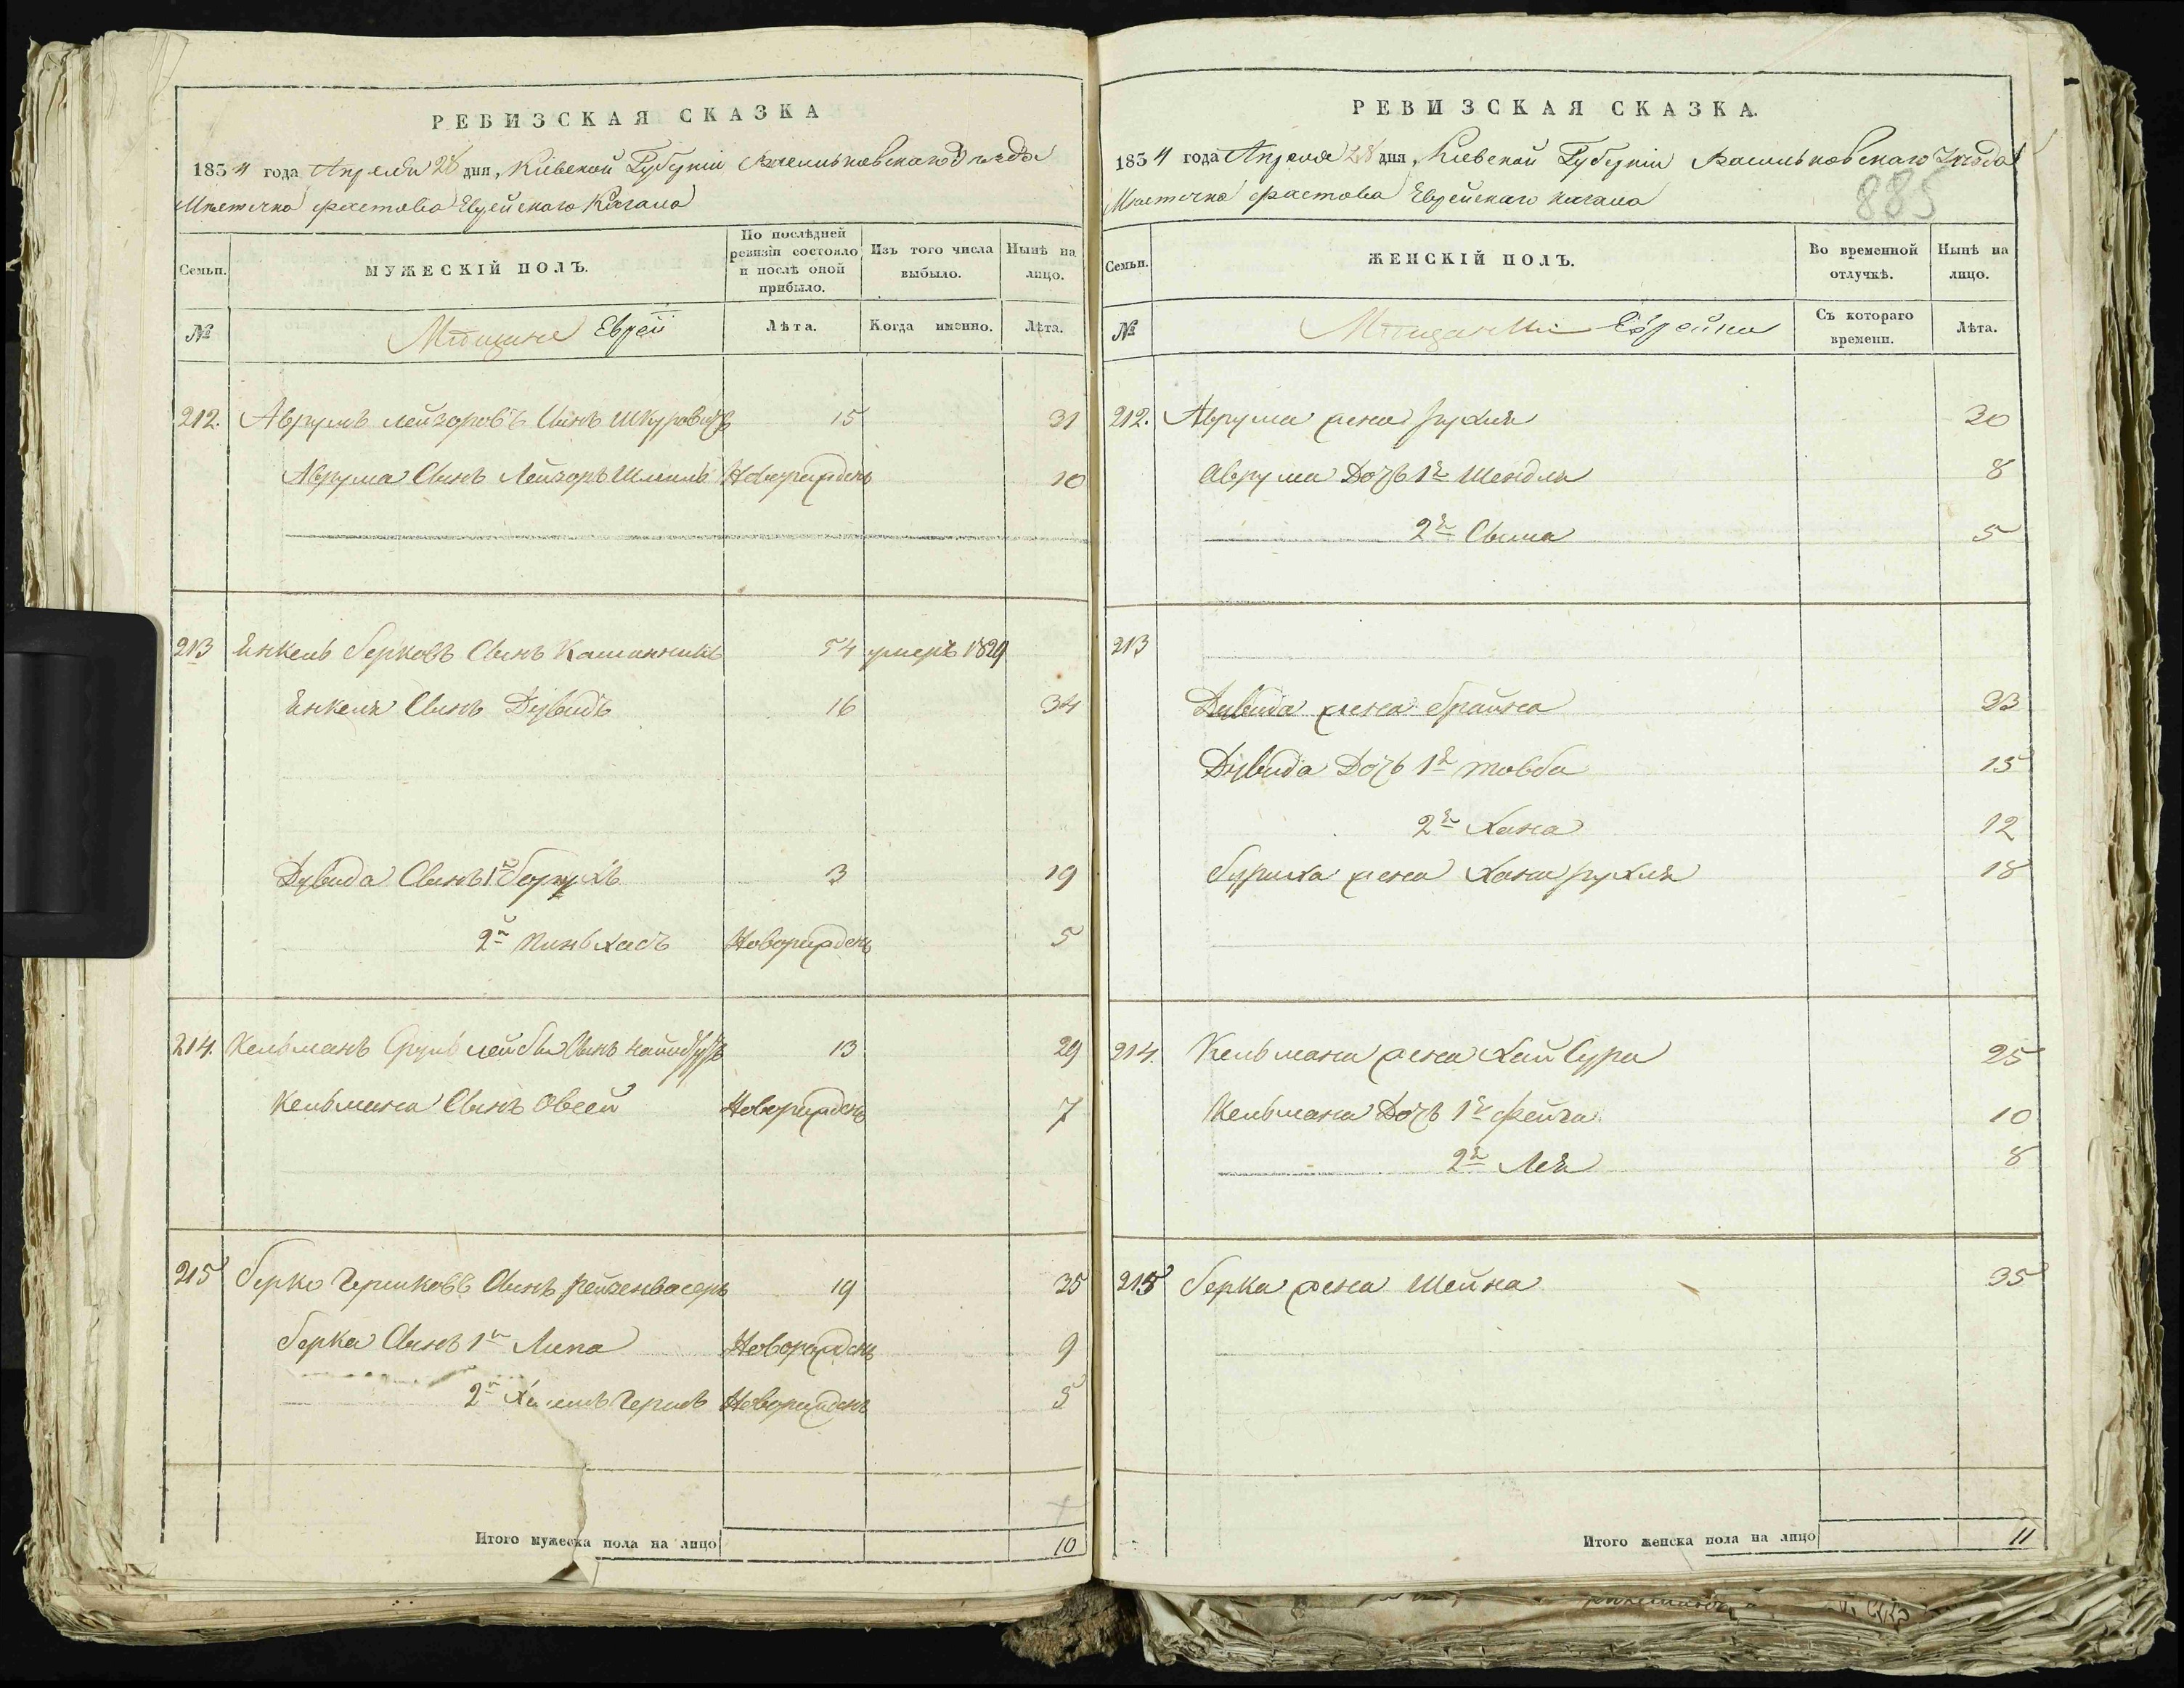 РЕВИЗСКАЯ СКАЗКА
1834 года Апреля 28 дня, Кіевской Губерніи Васильковского уезда
Местечка Фастова Еврейского Кагала
Семьи.
МУЖЕСКІЙ ПОЛЪ.
По послѣдней ревизіи состояло и послѣ оной прибыло.
Изъ того числа выбыло.
Нынѣ на лицо.
№
Мещане Евреи
Лѣта.
Когда именно.
Лѣта.
212. Аврумъ Лейзоровъ Сынъ Шкуровичъ 15 31
Аврума Сынъ Лейзоръ Шмиль Новорожденъ 10
213 Енкель Берковъ Сынъ 54 умеръ 1829
Енкеля Сынъ Дувидъ 16 34
Дувида Сынъ 1й Борухъ 3 19
2й Пиньхасъ Новорожденъ 5
214. Кельманъ Сруль Лейбы Сынъ 13 29
Кельмана Сынъ Овсей Новорожденъ 7
215 Берко Гершковъ Сынъ Рейзенвасеръ 19 35
Берка Сынъ 1й Липа Новорожденъ 9
2й Хаимъ Гершъ Новорожденъ 5
Итого мужеска пола на лицо 10
РЕВИЗСКАЯ СКАЗКА.
1834 года Апреля 28 дня, Кіевской Губерніи Васильковскаго уезда
Местечка Фастова Еврейскаго Кагала
885
Семьи.
ЖЕНСКІЙ ПОЛЪ.
Во временной отлучкѣ.
Нынѣ на лицо.
№
Мещанки Еврейки
Съ котораго времени.
Лѣта.
212. Аврума жена Рухля 30
Аврума Дочь 1я Шендля 8
2я Сима 5
213
Дувида жена Брайна 33
Дувида Дочь 1я Товба 15
2я Хана 12
Боруха жена Хана Рухля 18
214. Кельмана жена Хай Сура 25
Кельмана Дочь 1я Фейга 10
2я Лея 8
215 Берка жена Шейна 35
Итого женска пола на лицо 11